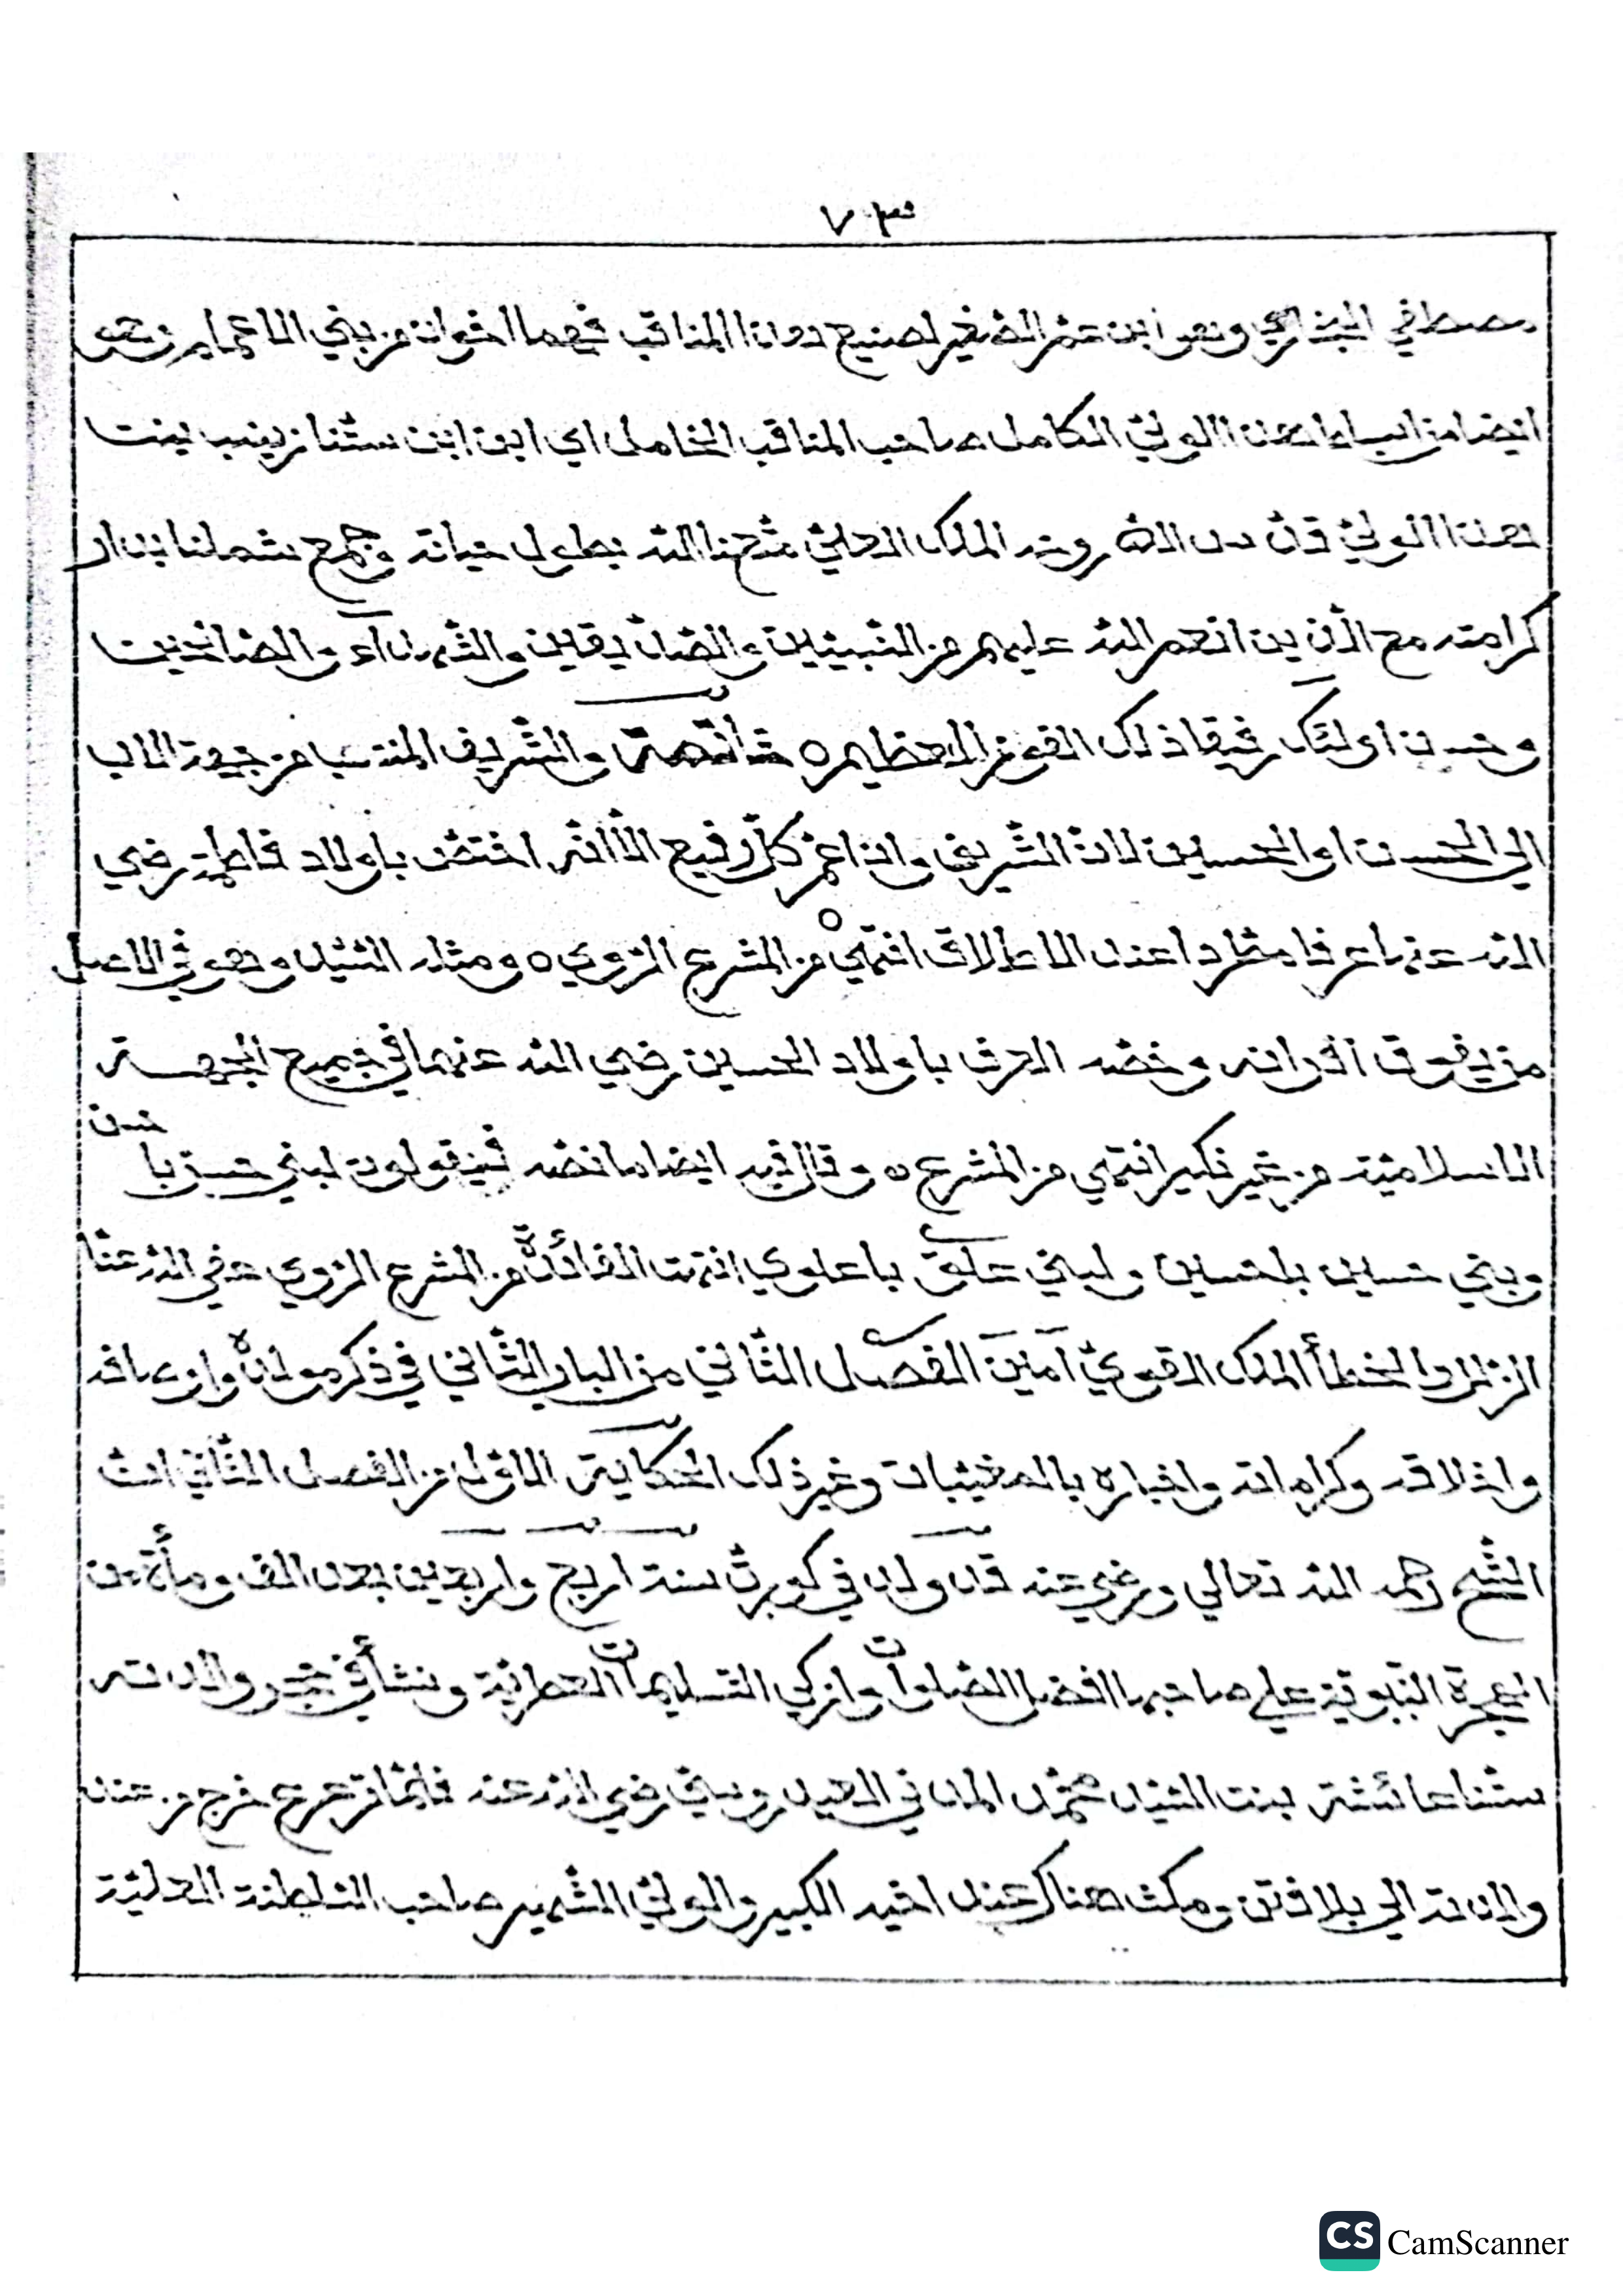 ٧٣
مصطفي البخاري وهو ابن عم الصغير لصنيع هذا المناقب فهما اخوان من بني الاعمام وهو
ايضا من اسباط هذا الولي الكامل صاحب المناقب الخامل اي ابن ابن ستنا زينب بنت
هذا الولي قدس الله روحه الملك العلي متعنا الله بطول حياته وجمع شملنا بدار
كرامته مع الذين انعم الله عليهم من النبيين والصديقين والشهدآء والصالحين
وحسن اولئك رفيقا ذلك الفوز العظيم ه خاتمة والشريف المنتسب من جهة الاب
الي الحسن او الحسين لان الشريف وان عم كل رفيع الا انه اختص باولاد فاطمة رضي
الله عنها عرفا مطردا عند الاطلاق انتهي ه من المشرع الروي ه ومثله السيد وهو في الاصل
من يفوق اقرانه وخصه العرف باولاد الحسين رضي الله عنهما في جميع الجهة
الاسلامية من غير نكير انتهي من المشرع ه وقال فيه ايضا ما نصه فيقولون لبني حسن باحسن
وبني حسين باحسين ولبني علوي باعلوي انتهت الفائدة من المشرع الروي عفي الله عنا
الزلل والخطأ الملك القوي آمين الفصل الثاني من الباب الثاني في ذكر مولده واوصافه
واخلاقه وكراماته واخباره بالمغيبات وغير ذلك الحكاية الاولي من الفصل الثاني ان
الشيخ رحمه الله تعالي ورضي عنه قد ولد في كوبرت سنة اربع واربعين بعد الف ومأة من
الهجرة النبوية علي صاحبها افضل الصلوات وازكي التسليمات العطرية ونشأ في حجر والدته
ستنا عائشة بنت السيد محمد المدني العيدروسي رضي الله عنه فلما ترعرع خرج من عند
والدته الي بلافتن ومكث هناك عند اخيه الكبير والولي الشهير صاحب السلطنة العلية
CS CamScanner